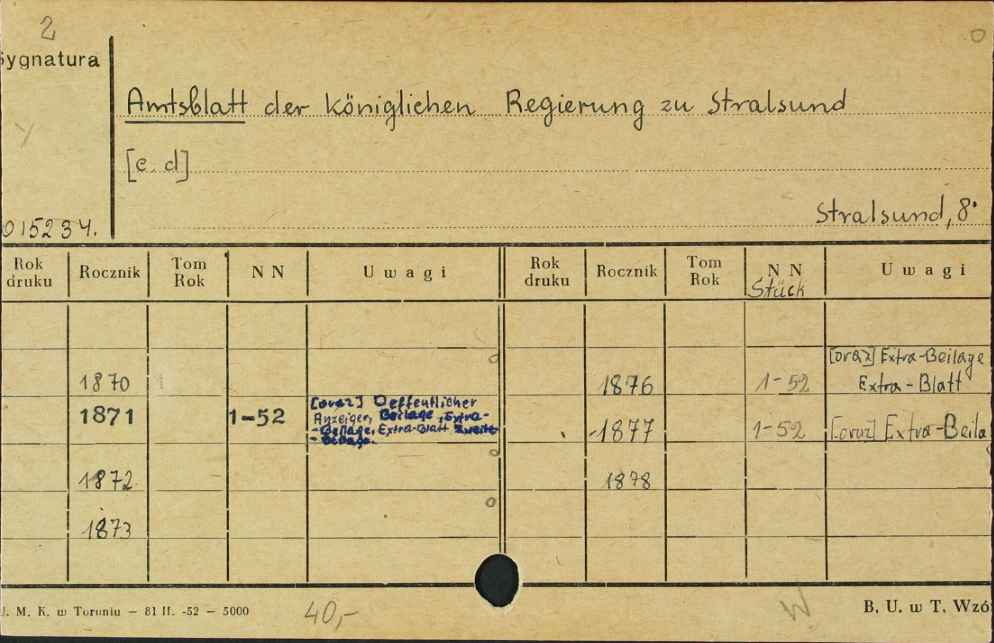 2
Sygnatura
Amtsblatt der Königlichen Regierung zu Stralsund
[c. d]
015234.
Stralsund, 8°
Rok druku Rocznik Tom Rok NN Uwagi Rok druku Rocznik Tom Rok NN Uwagi
Stück
1870 1876 1-52 [oraz] Extra-Beilage
Extra-Blatt
1871 1-52 [oraz] Oeffentlicher
Anzeiger, Beilage, Extra-
-Beilage, Extra-Blatt Zweite
-Beilage.
1877 1-52 [oraz] Extra-Beila
1872 1878
1873
J. M. K. w Toruniu — 81 II. -52 — 5000
40,-
W
B. U. w T. Wzó